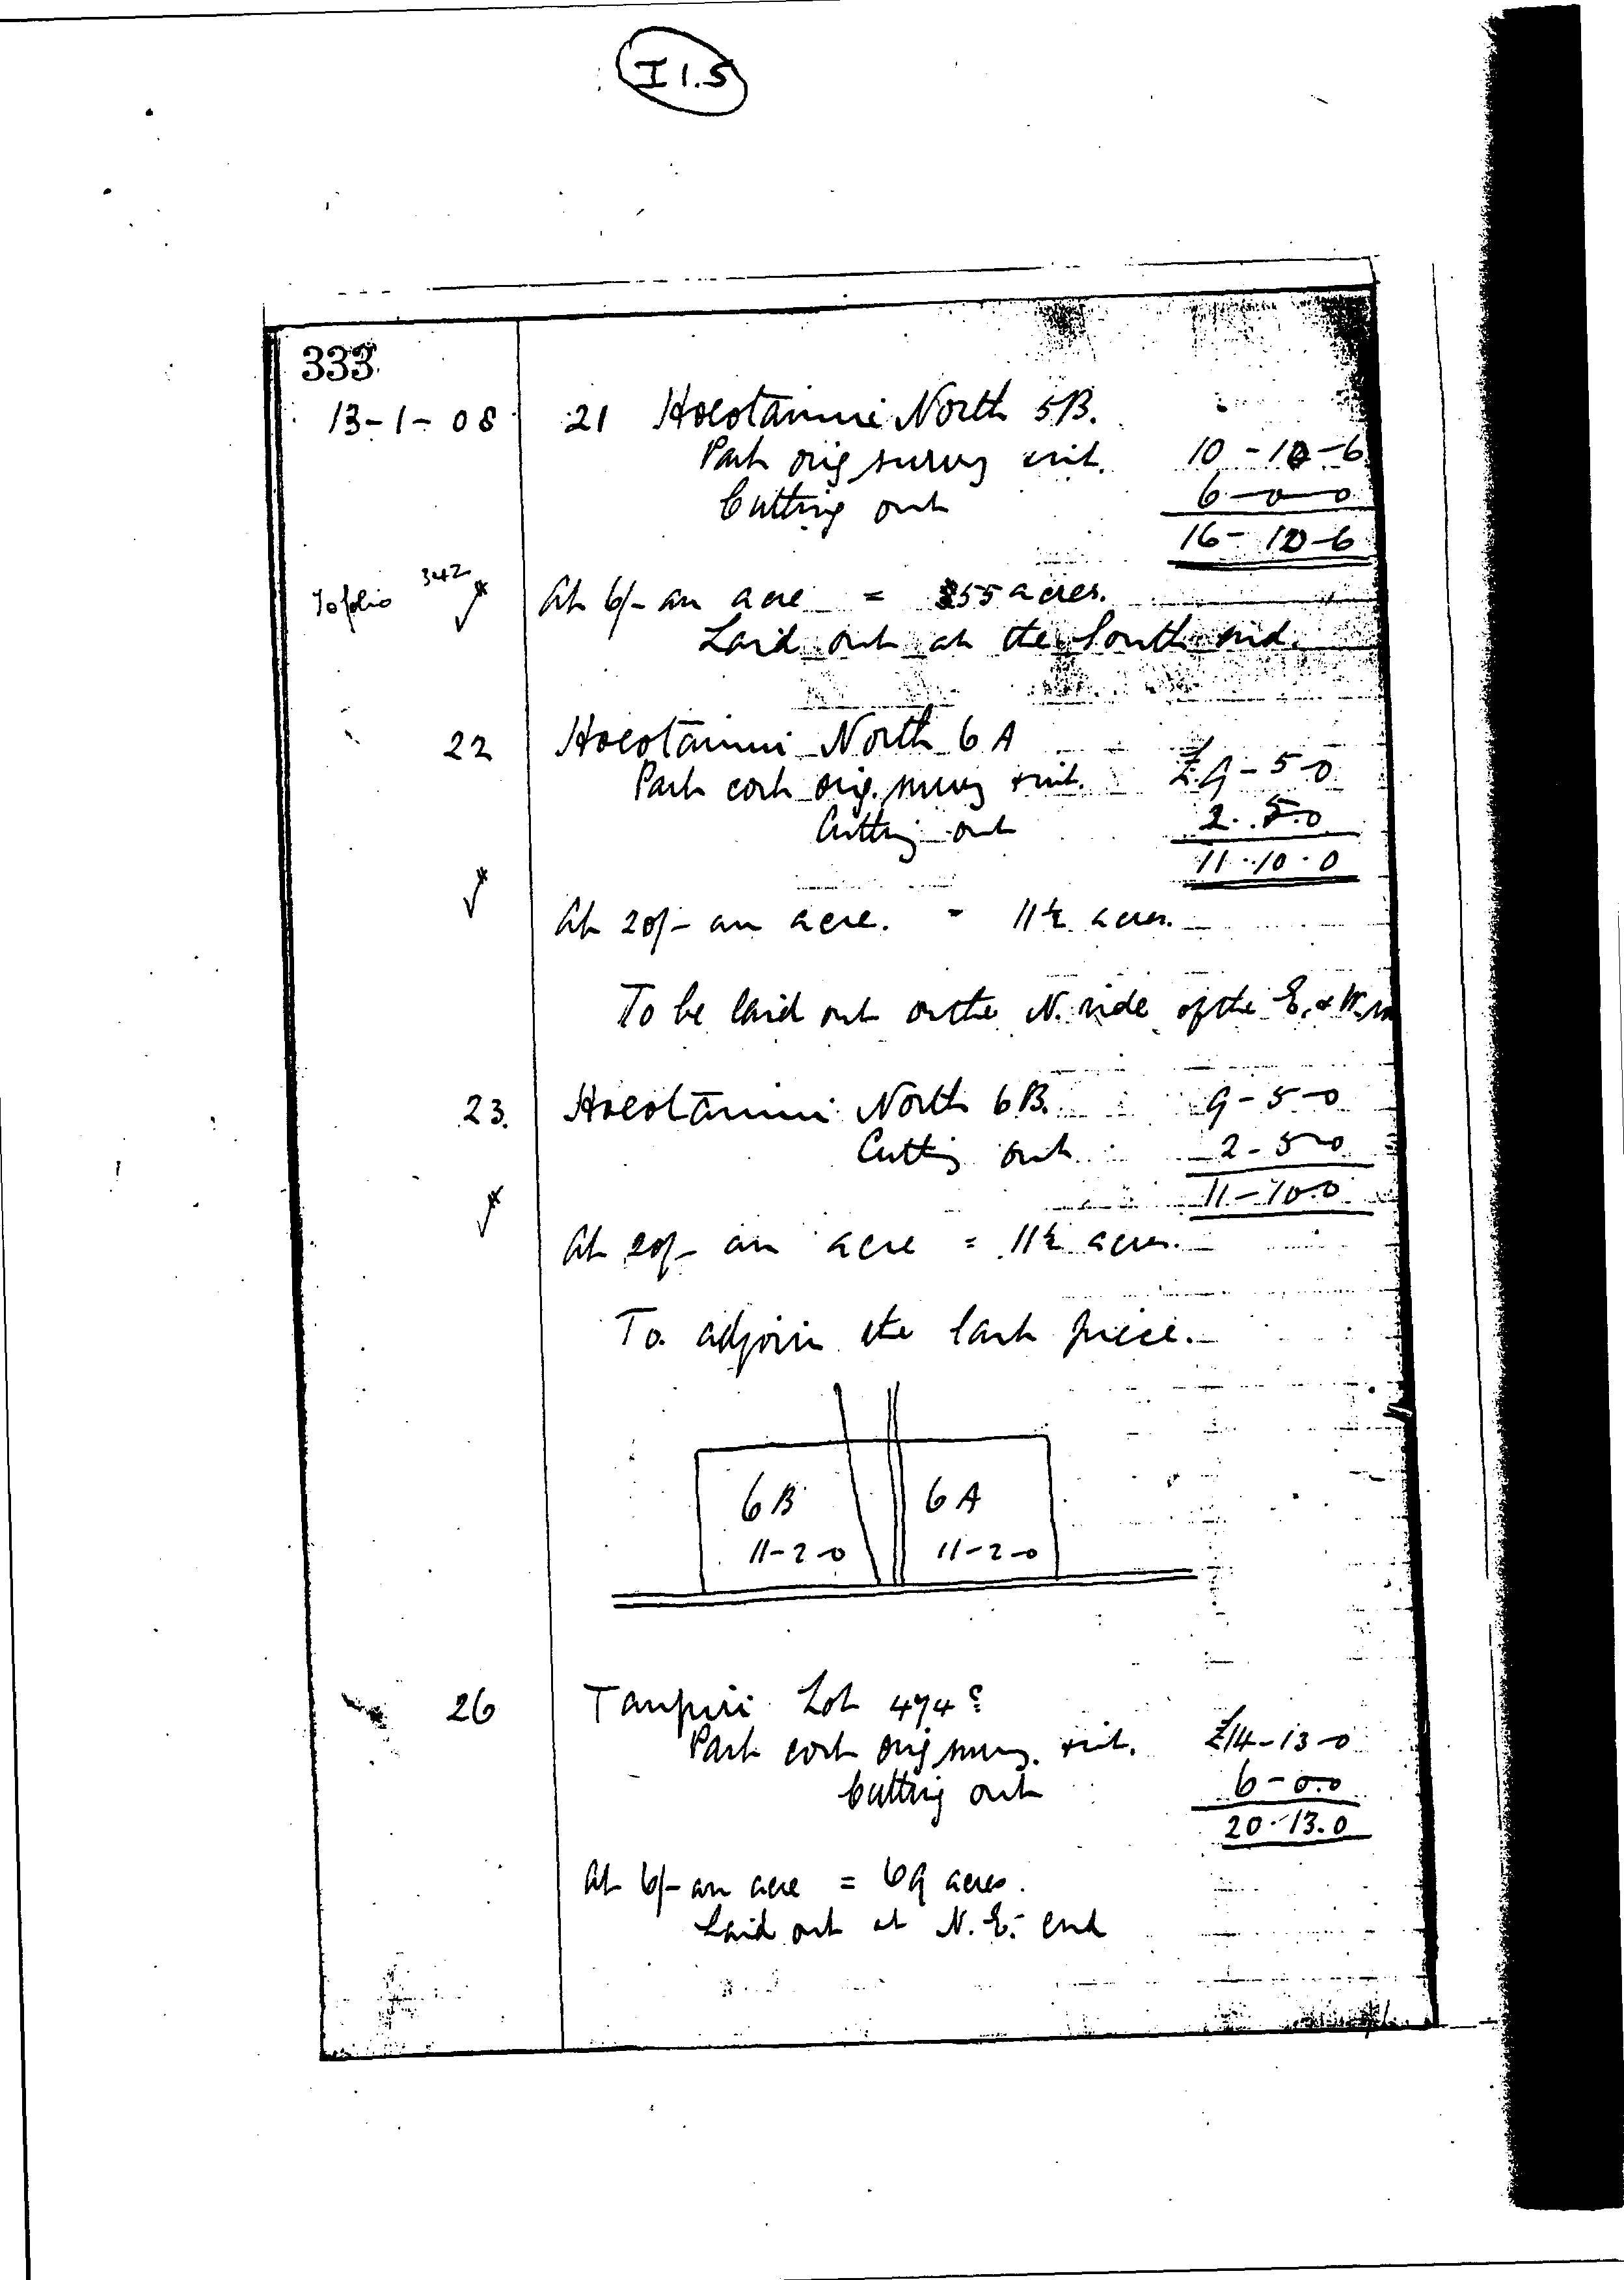 I 1.5
333
13-1-08
21 Hoeotainui North 5B.
Part orig survey + int. 10-10-6
Cutting out 6-0-0
16-10-6
To folio 342
At 6/- an acre = 55 acres.
Laid out at the South end.
22 Hoeotainui North 6A
Part cost orig. survey + int. £9-5-0
Cutting out 2.5.0
11.10.0
At 20/- an acre. = 11½ acres.
To be laid out on the N. side of the E. & W.
23. Hoeotainui North 6B. 9-5-0
Cutting out 2-5-0
11-10-0
At 20/- an acre = 11½ acres.
To adjoin the last piece.
6B 6A
11-2-0 11-2-0
26 Taupiri Lot 474?
Part cost orig survey. + int. £14-13-0
Cutting out 6-0-0
20.13.0
At 6/- an acre = 69 acres.
Laid out at N.E. end